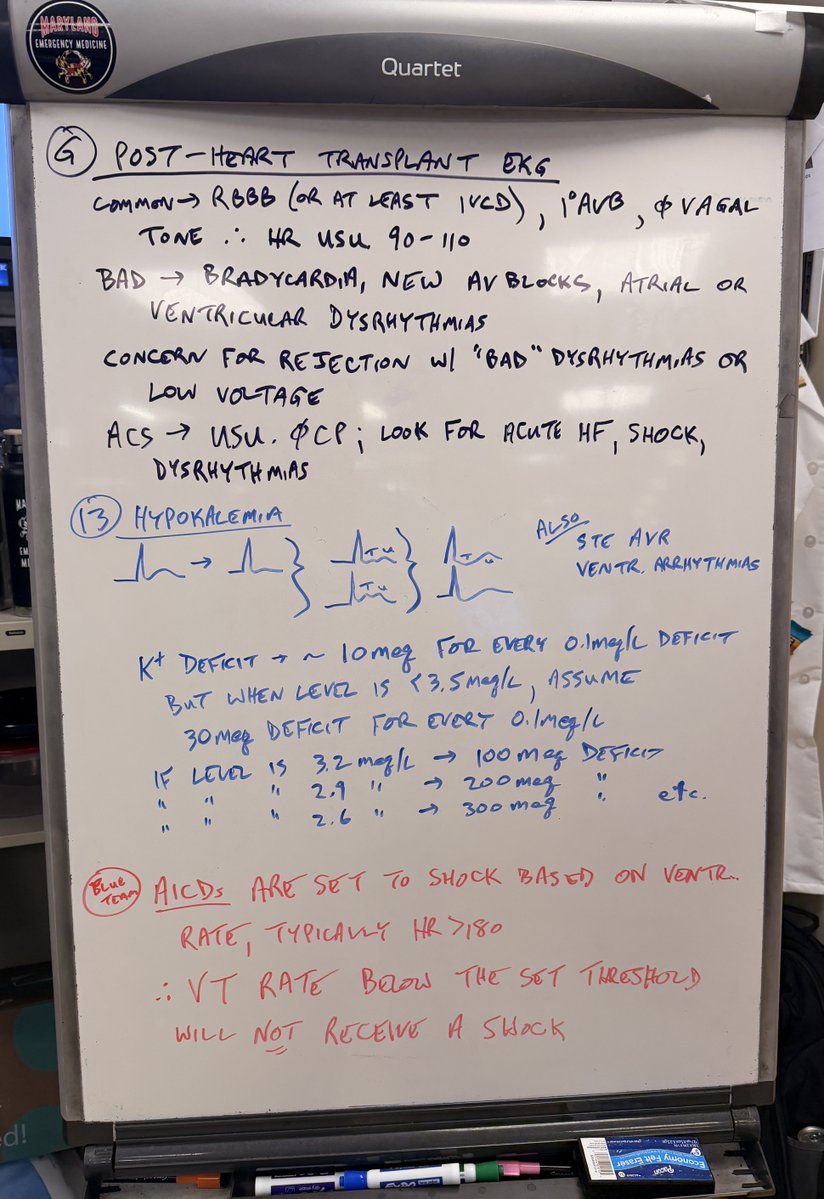 MARYLAND
EMERGENCY MEDICINE
Quartet
G POST-HEART TRANSPLANT EKG
COMMON → RBBB (OR AT LEAST IVCD), 1° AVB, ∅ VAGAL
TONE ∴ HR USU 90-110
BAD → BRADYCARDIA, NEW AV BLOCKS, ATRIAL OR
VENTRICULAR DYSRHYTHMIAS
CONCERN FOR REJECTION W/ "BAD" DYSRHYTHMIAS OR
LOW VOLTAGE
ACS → USU. ∅ CP; LOOK FOR ACUTE HF, SHOCK,
DYSRHYTHMIAS
13 HYPOKALEMIA
T U
T U
T
U
ALSO
STE AVR
VENTR. ARRHYTHMIAS
K+ DEFICIT → ~ 10meq FOR EVERY 0.1meq/L DEFICIT
BUT WHEN LEVEL IS <3.5meq/L, ASSUME
30meq DEFICIT FOR EVERY 0.1meq/L
IF LEVEL IS 3.2 meq/L → 100 meq DEFICIT
" " " 2.9 " → 200 meq "
" " " 2.6 " → 300 meq " etc.
BLUE TEAM AICDs ARE SET TO SHOCK BASED ON VENTR.
RATE, TYPICALLY HR >180
∴ VT RATE BELOW THE SET THRESHOLD
WILL NOT RECEIVE A SHOCK
Economy Felt Eraser